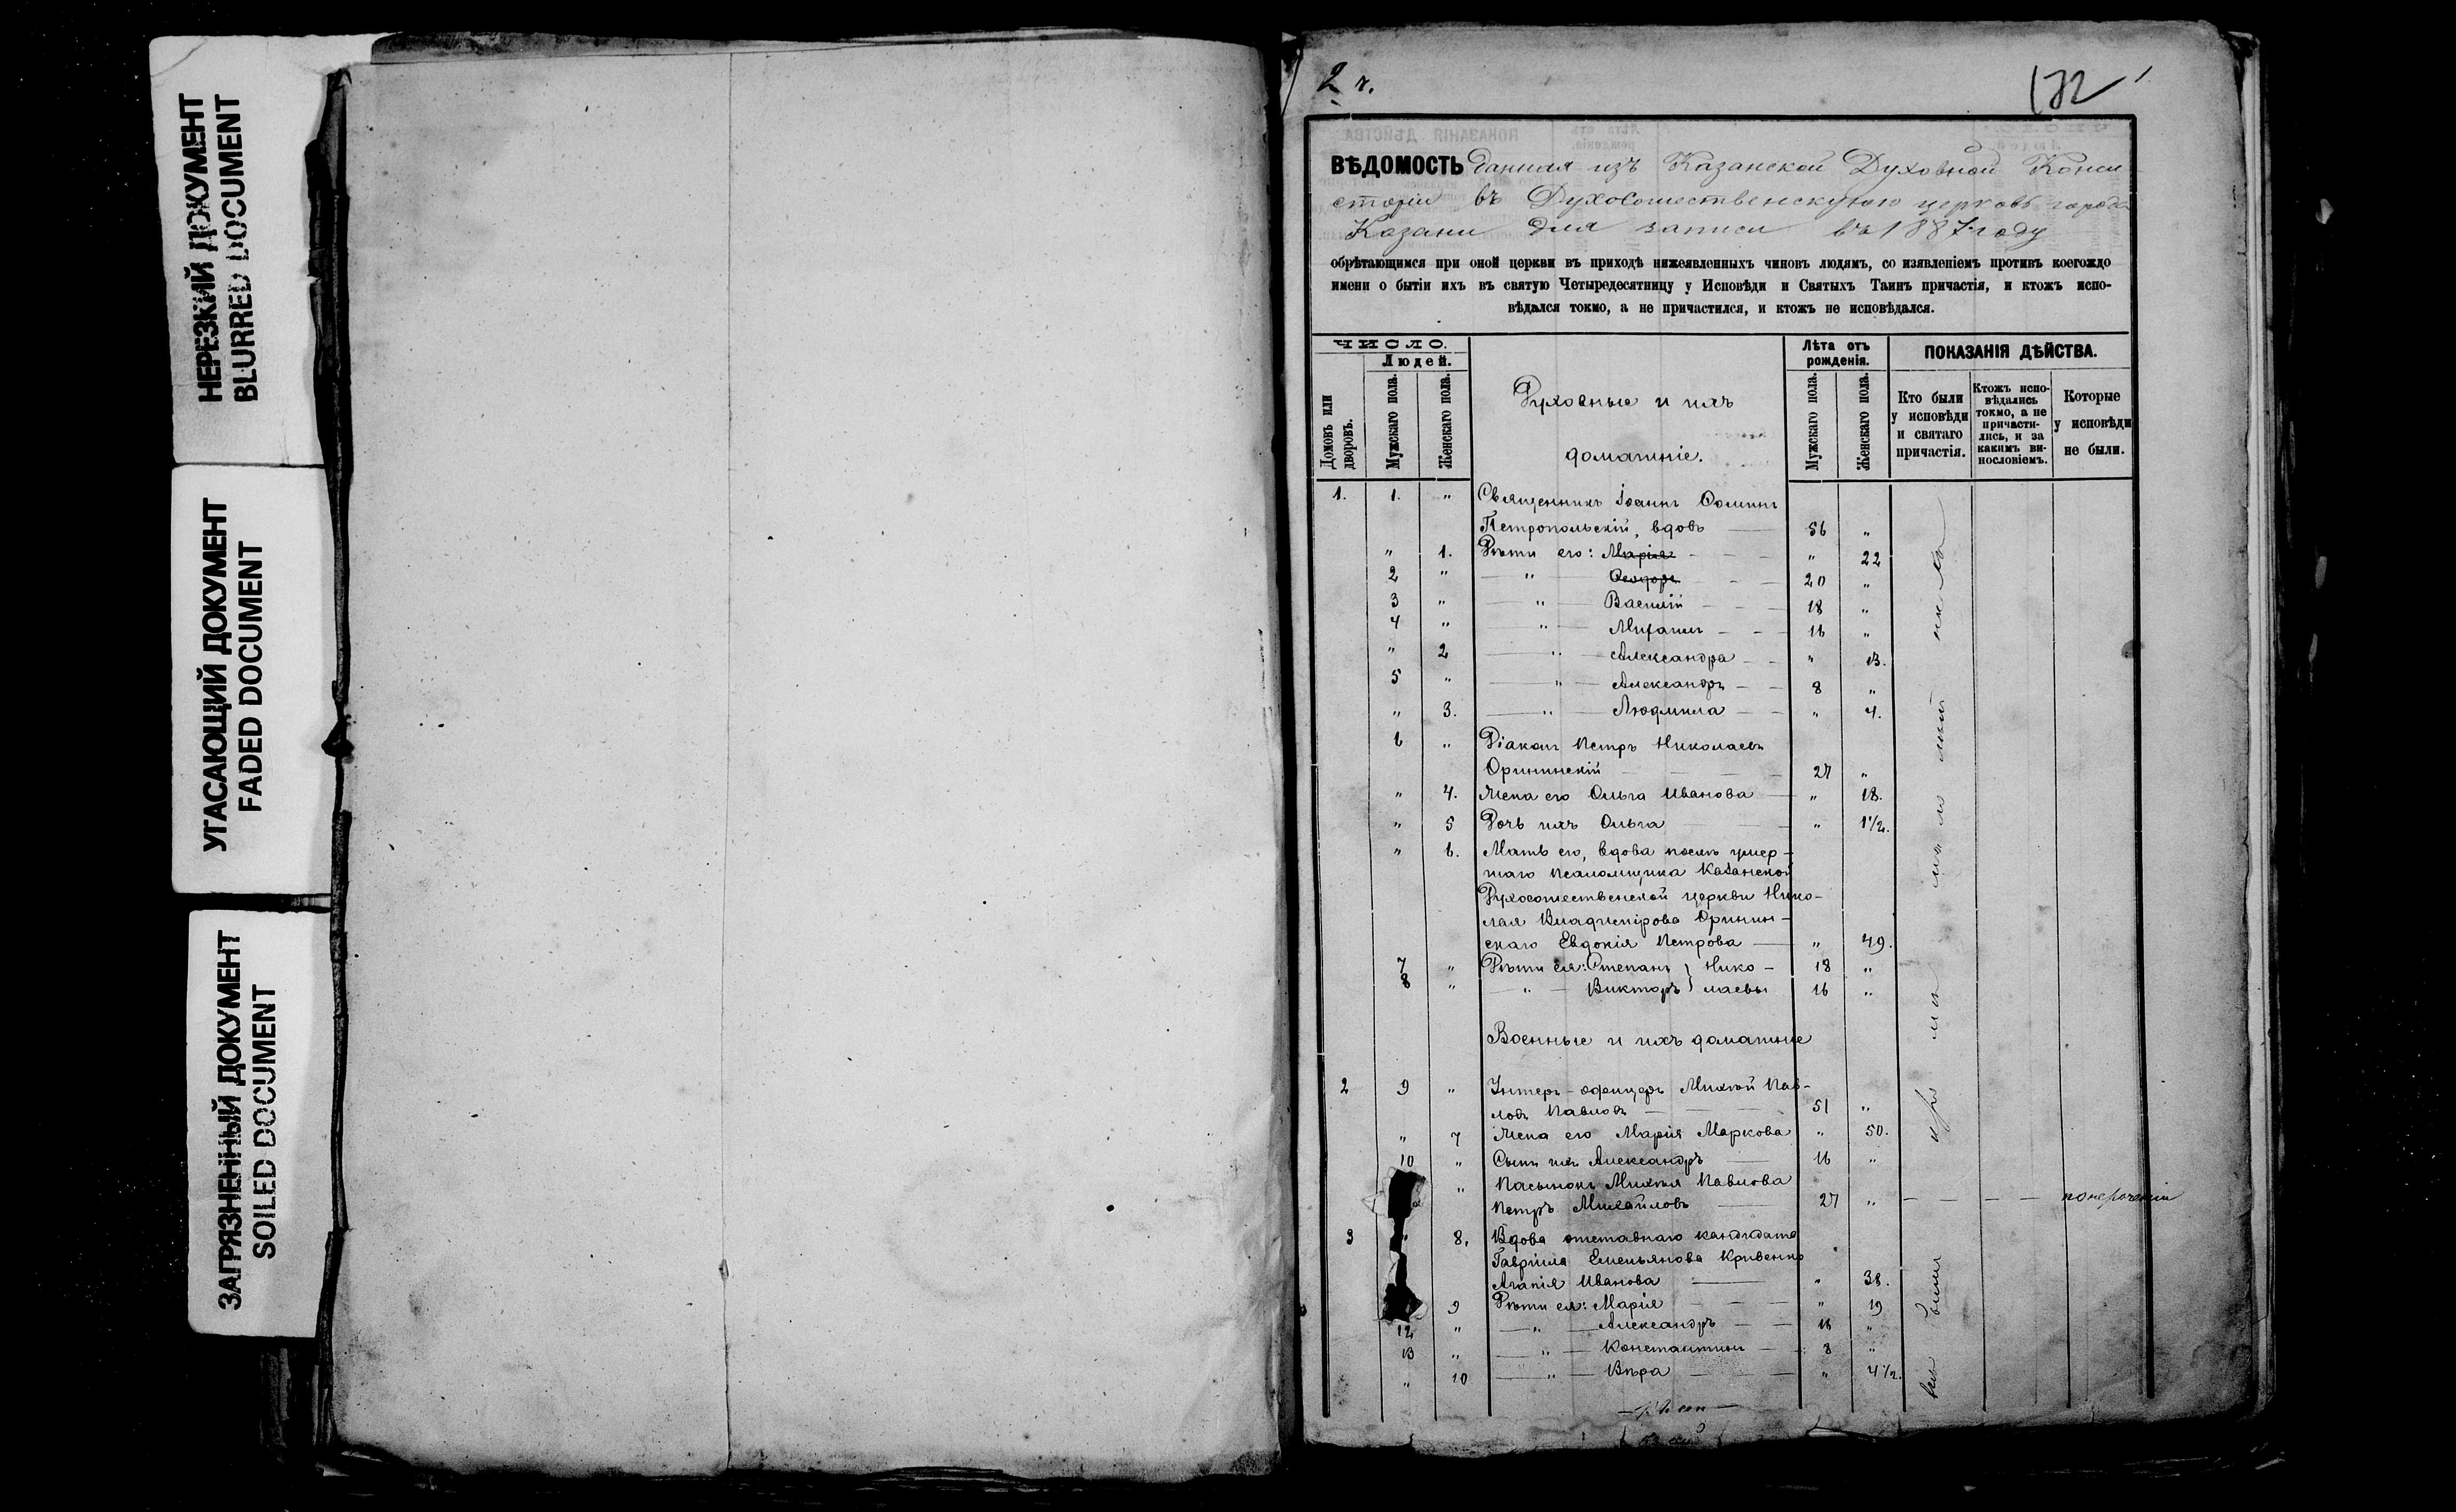 НЕРЕЗКИЙ ДОКУМЕНТ
BLURRED DOCUMENT
УГАСАЮЩИЙ ДОКУМЕНТ
FADED DOCUMENT
ЗАГРЯЗНЕННЫЙ ДОКУМЕНТ
SOILED DOCUMENT
2 ч.
ВѢДОМОСТЬ данная изъ Казанской Духовной Конси
сторіи въ Духосошественскую церковь города
Казани для записи въ 1887 году
обрѣтающимся при оной церкви въ приходѣ нижеявленныхъ чиновъ людямъ, со изявленіемъ противъ коегождо
имени о бытіи ихъ въ святую Четыредесятницу у Исповѣди и Святыхъ Таинъ причастія, и ктожъ испо-
вѣдался токмо, а не причастился, и ктожъ не исповѣдался.
ЧИСЛО.
Людей.
Домовъ или дворовъ.
Мужскаго пола.
Женскаго пола.
Духовные и ихъ
домашніе.
Лѣта отъ
рожденія.
Мужскаго пола.
Женскаго пола.
ПОКАЗАНІЯ ДѢЙСТВА.
Кто были
у исповѣди
и святаго
причастія.
Ктожъ испо-
вѣдались
токмо, а не
причасти-
лись, и за
какимъ ви-
нословіемъ.
Которые
у исповѣди
не были.
1. 1. " Священникъ Іоаннъ Ѳоминъ
Петропольскій, вдовъ 56 "
" 1. Дѣти его: Марія " 22
2 " " Ѳеодоръ 20 "
3 " " Василій 18 "
4 " " Михаилъ 16 "
" 2 " Александра " 13.
5 " " Александръ 8 "
" 3. " Людмила " 4.
6 " Діаконъ Петръ Николаевъ
Орининскій 27 "
" 4. Жена его Ольга Иванова " 18.
" 5 Дочь ихъ Ольга " 1 1/2.
" 6. Мать его, вдова послѣ умер-
шаго псаломщика Казанской
Духосошественской церкви Нико-
лая Владимірова Оринин-
скаго Евдокія Петрова " 49.
7 " Дѣти ея: Степанъ } Нико- 18 "
8 " " Викторъ } лаевы 16 "
Военные и ихъ домашніе
2 9 " Унтеръ-офицеръ Михѣй Пав-
ловъ Павловъ 51 "
" 7 Жена его Марія Маркова " 50.
10 " Сынъ ихъ Александръ 16 "
" Пасынокъ Михѣя Павлова
Петръ Михайловъ 27 "
3 " 8. Вдова отставнаго кандидата
Гавріила Емельянова Кривенко
Агапія Иванова " 38.
9 Дѣти ея: Марія " 19
12 " " Александръ 16 "
13 " " Константинъ 8 "
" 10 " Вѣра " 4 1/2.